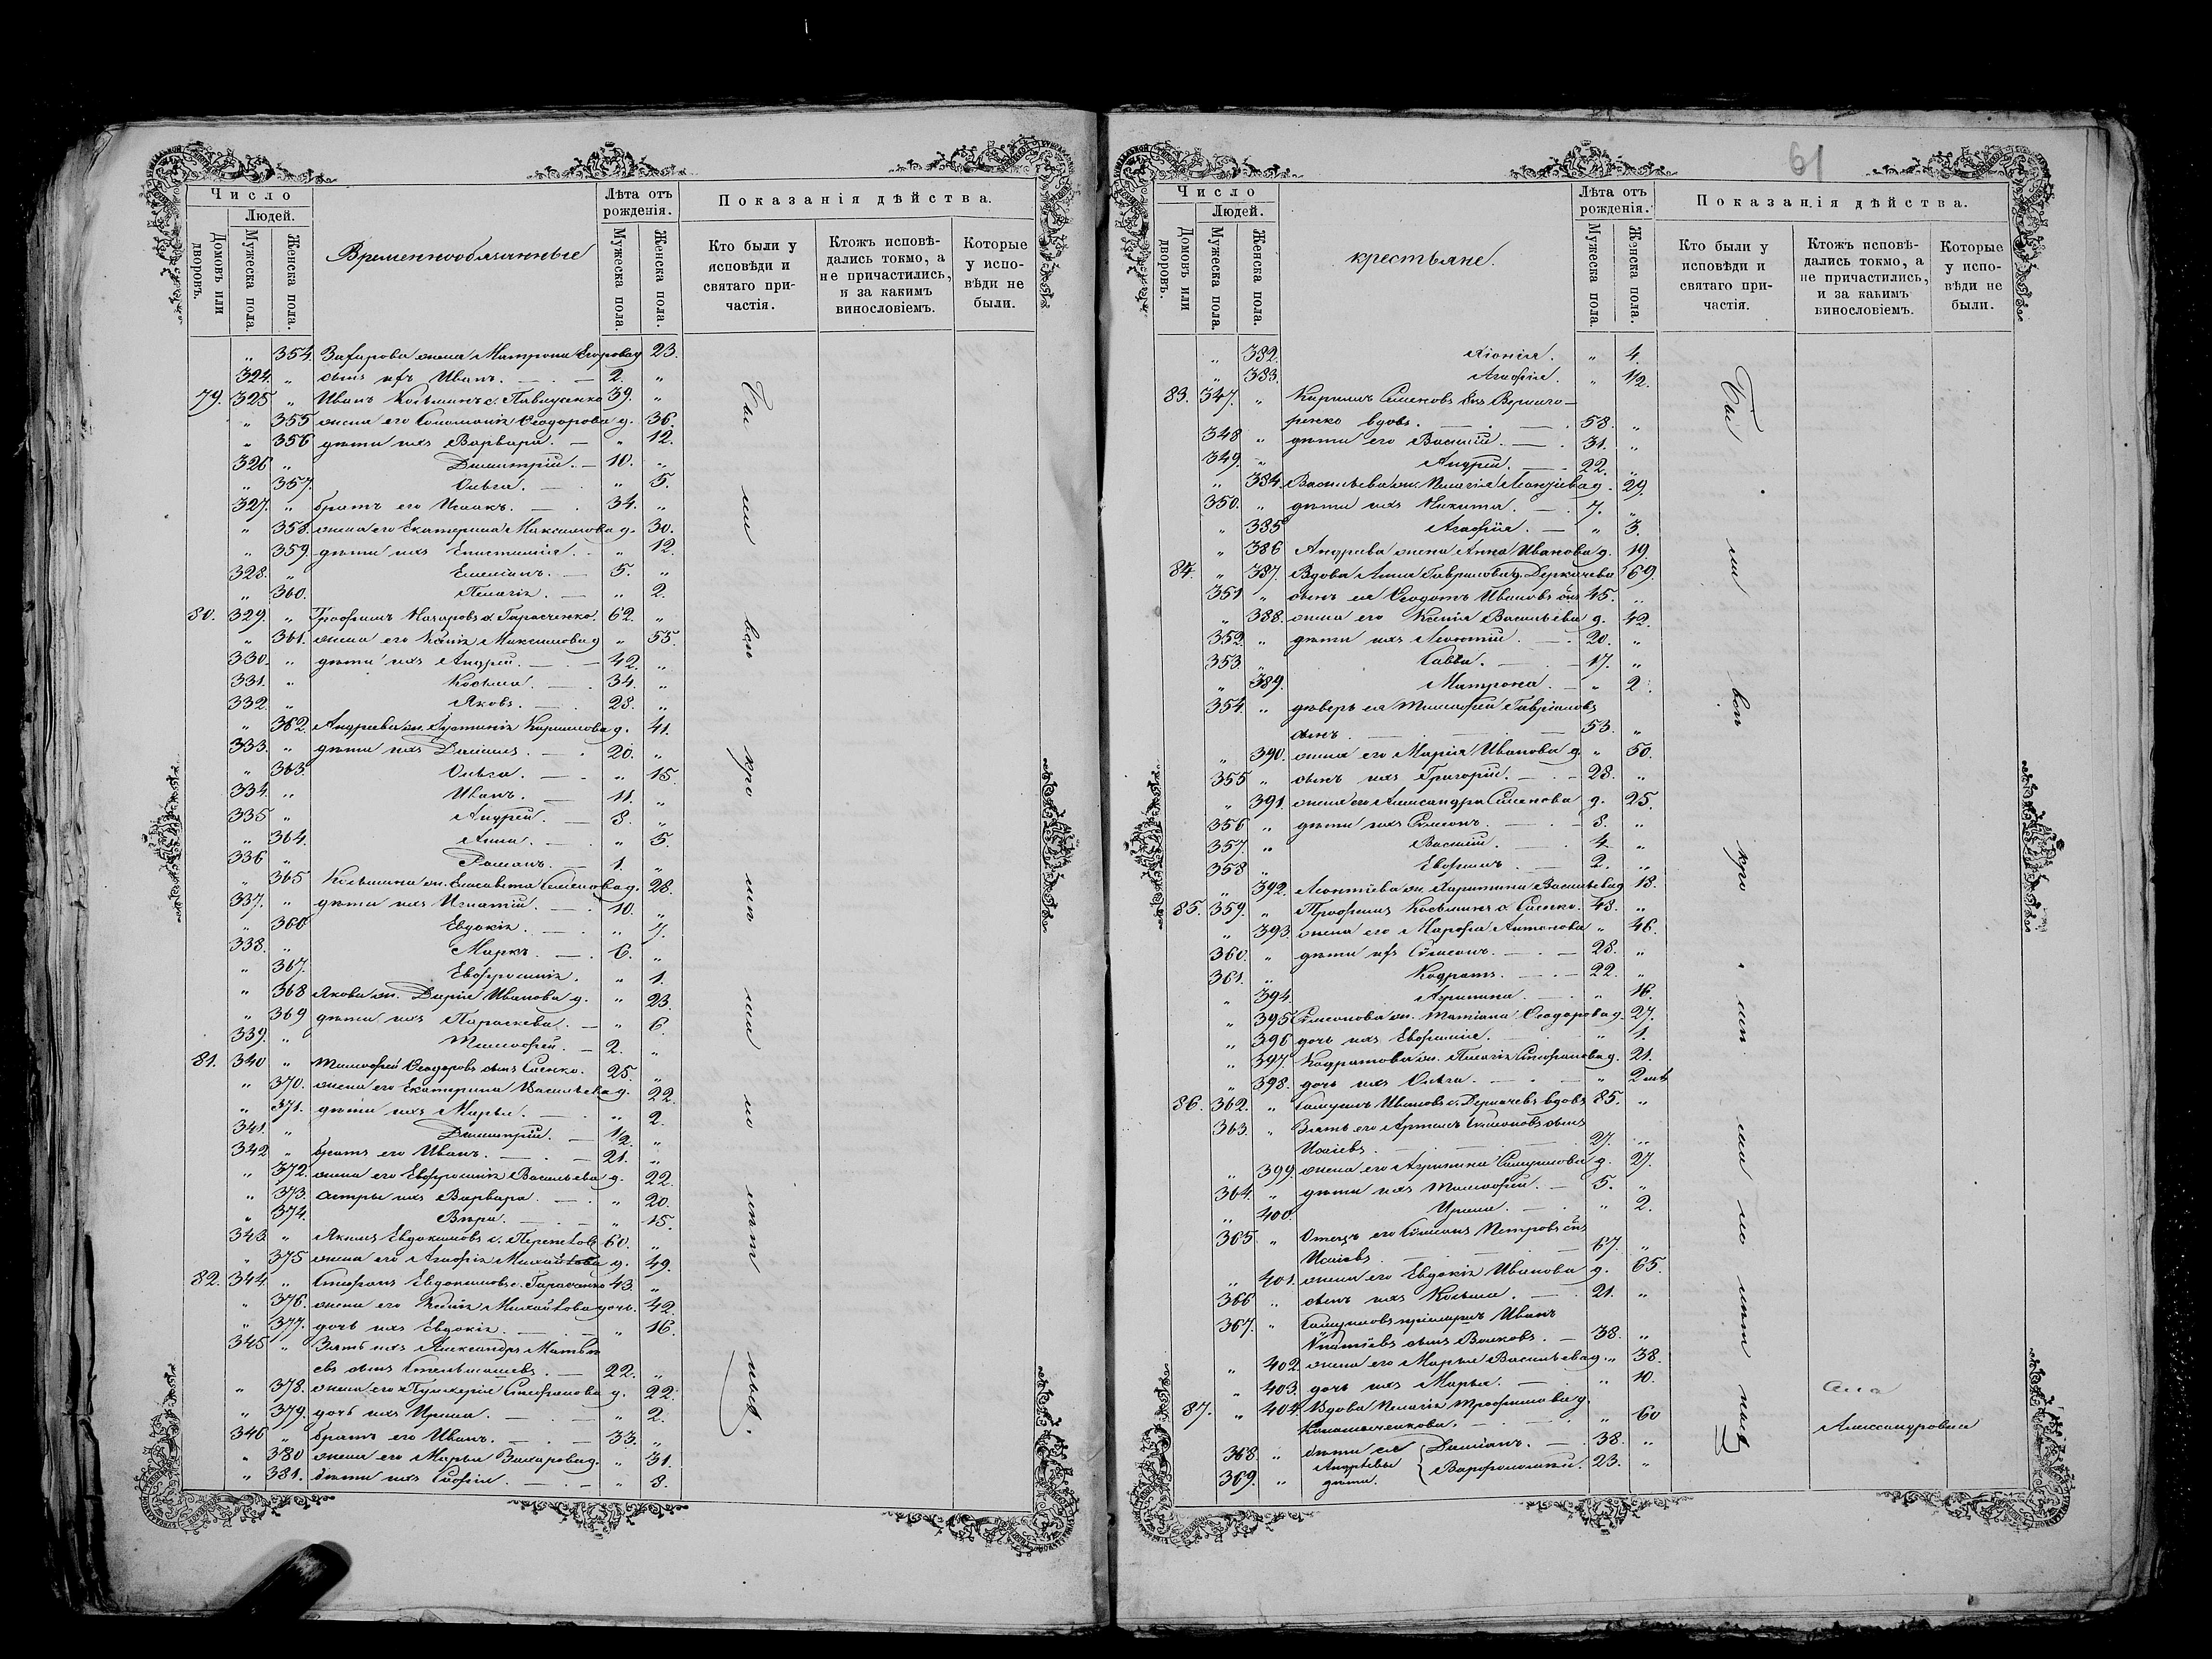 Число
Людей.
Домовъ или дворовъ.
Мужеска пола.
Женска пола.
Временнообязанные
Лѣта отъ рожденія.
Мужеска пола.
Женска пола.
Показанія дѣйства.
Кто были у исповѣди и святаго при-частія.
Ктожъ исповѣ-дались токмо, а не причастились, и за какимъ винословіемъ.
Которые у испо-вѣди не были.
„ 354. Захарова жена Матрона Егорова д. 23.
324. „ сынъ ихъ Иванъ. 2. „
79. 325 „ Иванъ Козьминъ с. 39. „
„ 355 жена его Соломанія Ѳеодорова д. 36.
„ 356 дѣти ихъ Варвара. „ 12.
326 „ Димитрій. 10. „
„ 357. Ольга. „ 5.
327. „ братъ его Исаакъ. 34. „
„ 358. жена его Екатерина Максимова д. 30.
„ 359. дѣти ихъ Епистимія. „ 12.
328. „ Емеліанъ. 5. „
„ 360. Пелагія. „ 2.
80. 329. „ Трофимъ Назаровъ с. Гарасченко. 62. „
„ 361. жена его Ксенія Максимова д. „ 55.
330. „ дѣти ихъ Андрей. 42. „
331. „ Козьма. 34. „
332. „ Яковъ. 28. „
„ 362. Андреева ж. Іустинія Кирилова д. 41.
333. „ дѣти ихъ Даніилъ. 20. „
„ 363. Ольга. „ 15.
334. „ Иванъ. 11. „
335 „ Андрей. 8. „
„ 364. Анна. „ 5.
336 „ Романъ. 1. „
„ 365 Козьмина ж. Елисавета Семенова д. 28.
337. „ дѣти ихъ Игнатій. 10. „
„ 366 Евдокія. „ 7.
338. „ Маркъ. 6. „
„ 367. Евфросинія. „ 1.
„ 368 Якова ж. Дарія Иванова д. „ 23.
„ 369 дѣти ихъ Параскева. „ 6.
339. „ Тимофей. 2. „
81. 340 „ Тимофей Ѳеодоровъ сынъ Саенко. 25. „
„ 370. жена его Екатерина Васильева д. 22.
„ 371. дѣти ихъ Марья. „ 2.
341. „ Димитрій. 1/2. „
342 „ братъ его Иванъ. 21. „
„ 372. жена его Евфросинія Васильева д. 22.
„ 373. сестры ихъ Варвара. „ 20.
„ 374. Вѣра. „ 15.
343. „ Якимъ Евдокимовъ с. 60. „
„ 375 жена его Агафія Михайлова д. 49.
82. 344. „ Стефанъ Евдокимовъ с. 43. „
„ 376. жена его Ксенія Михайлова дочь. 42.
„ 377. дочь ихъ Евдокія. „ 16.
345 „ Зять ихъ Александръ Матвѣ
евъ сынъ 22. „
„ 378. жена его Пульхерія Стефанова д. 22.
„ 379. дочь ихъ Ирина. „ 2.
346 „ братъ его Иванъ. 33. „
„ 380 жена его Марья Захарова д. „ 31.
„ 381. дѣти ихъ Софія. „ 8.
61
Число
Людей.
Домовъ или дворовъ.
Мужеска пола.
Женска пола.
крестьяне.
Лѣта отъ рожденія.
Мужеска пола.
Женска пола.
Показанія дѣйства.
Кто были у исповѣди и святаго при-частія.
Ктожъ исповѣ-дались токмо, а не причастились, и за какимъ винословіемъ.
Которые у испо-вѣди не были.
„ 382. „ 4.
„ 383. Агафія. „ 1/2.
83. 347. „ Кирилъ Семеновъ
вдовъ. 58. „
348 „ дѣти его Василій. 31. „
349. „ Андрей. 22. „
„ 384. Васильева ж. Пелагія д. 29.
350. „ дѣти ихъ Никита. 7. „
„ 385 Агафія. „ 3.
„ 386 Андреева жена Анна Иванова д. 19.
84. „ 387. Вдова Анна Гаврилова д. Деркачева 69.
351 „ сынъ ея Ѳеодотъ Ивановъ 45. „
„ 388. жена его Ксенія Васильева д. 42.
352. „ дѣти ихъ Леонтій. 20. „
353 „ Савва. 17. „
„ 389. Матрона. „ 2.
354. „ деверь ея Тимофей Гавріиловъ
сынъ. 53. „
„ 390. жена его Марія Иванова д. „ 50.
355 „ сынъ ихъ Григорій. 28. „
„ 391. жена его Александра Семенова д. 25.
356 „ дѣти ихъ Сѵмеонъ. 8. „
357. „ Василій. 4. „
358 „ Ефримъ. 2. „
„ 392. Леонтіева ж. Харитина Васильева д. 18.
85. 359. „ Трофимъ Козьминъ с. Саенко. 48. „
„ 393. жена его Марфа Антонова „ 46.
360. „ дѣти ихъ Сѵмеонъ. 28. „
361. „ Кодратъ. 22. „
„ 394. Агрипина. „ 16.
„ 395 Сѵмеонова ж. Татіана Ѳеодорова д. 27.
„ 396 дочь ихъ Евфимія. „ 1.
„ 397. Кодратова ж. Пелагія Стефанова д. 21.
„ 398. дочь ихъ Ольга. „ 2 мѣ
86. 362. „ Самуилъ Ивановъ с. Деркачевъ вдовъ 85. „
363. „ Зять его Артемъ Сѵмеоновъ сынъ
Исаіевъ. 27. „
„ 399. жена его Агрипина Самуилова д. 27.
364. „ дѣти ихъ Тимофей. 5. „
„ 400. Ирина. „ 2.
365. „ Отецъ его Сѵмеонъ Петровъ
Исаіевъ. 67. „
„ 401. жена его Евдокія Иванова д. 65.
366 „ сынъ ихъ Козьма. 21. „
367. „ Самуиловъ пріемышъ Иванъ
сынъ Волковъ. 38. „
„ 402. жена его Марья Васильева д. „ 38.
„ 403. дочь ихъ Марья. „ 10.
87. „ 404 Вдова Пелагія Трофимова д.
„ 60
368 „ дѣти ея Даміанъ. 38. „
369. „ Андреевы дѣти. Варфоломей. 23. „
Александровка